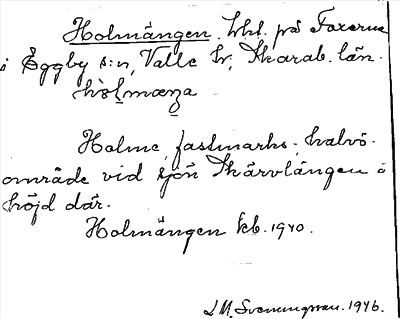 Holmängen. lht. på Toxerna
i Eggby s:n, Valle hr, Skarab. län.
Holme, fastmarks-, halvö-
område vid sjön Skärvlången i
höjd där.
Holmängen kb. 1940.
L M. Svenungsson. 1946.